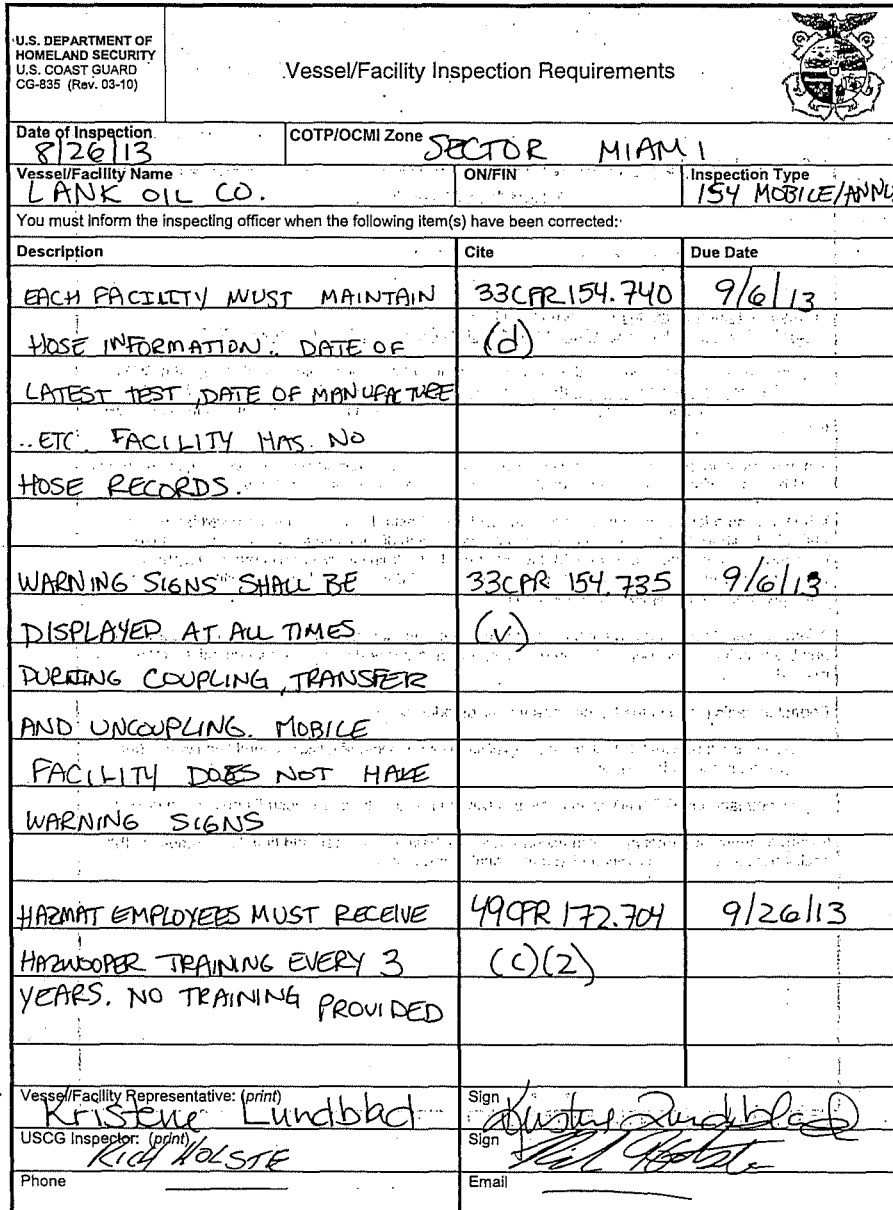 U.S. DEPARTMENT OF
HOMELAND SECURITY
U.S. COAST GUARD
CG-835 (Rev. 03-10)
Vessel/Facility Inspection Requirements
Date of Inspection
8/26/13
COTP/OCMI Zone SECTOR MIAMI
Vessel/Facility Name
LANK OIL CO.
ON/FIN
Inspection Type
154 MOBILE/ANNU
You must inform the inspecting officer when the following item(s) have been corrected:
Description Cite Due Date
EACH FACILITY MUST MAINTAIN 33CFR 154.740 9/6/13
HOSE INFORMATION: DATE OF (d)
LATEST TEST, DATE OF MANUFACTURE
..ETC. FACILITY HAS NO
HOSE RECORDS.
WARNING SIGNS SHALL BE 33CFR 154.735 9/6/13
DISPLAYED AT ALL TIMES (v)
DURING COUPLING, TRANSFER
AND UNCOUPLING. MOBILE
FACILITY DOES NOT HAVE
WARNING SIGNS
HAZMAT EMPLOYEES MUST RECEIVE 49CFR 172.704 9/26/13
HAZWOOPER TRAINING EVERY 3 (c)(2)
YEARS. NO TRAINING PROVIDED
Vessel/Facility Representative: (print)
Kristene Lundblad
Sign
Kristene Lundblad
USCG Inspector: (print)
Rich HOLSTE
Sign
Phone
Email